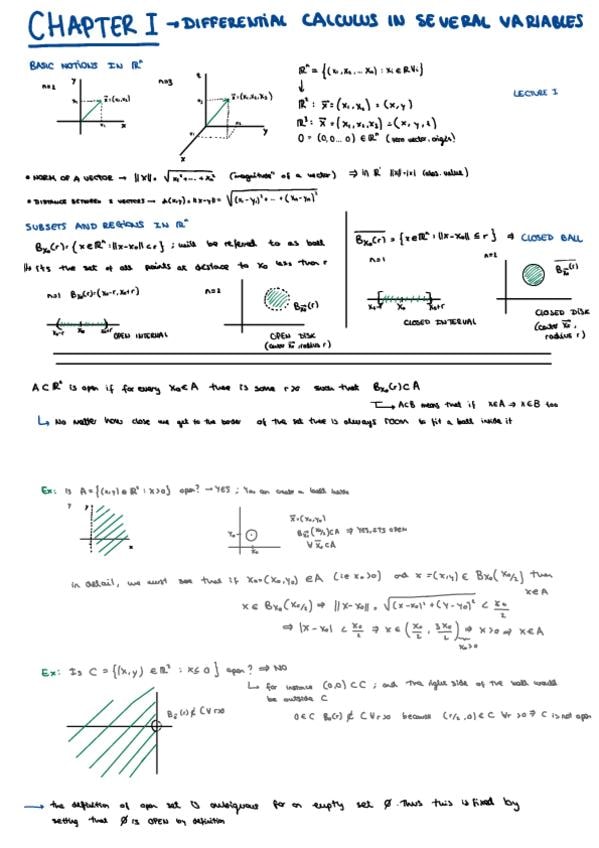 CHAPTER I → DIFFERENTIAL CALCULUS IN SEVERAL VARIABLES
BASIC NOTIONS IN ℝⁿ
LECTURE 1
n=2
n=3
y
x
z
y
x
x̄=(x₁,x₂)
x̄=(x₁,x₂,x₃)
ℝⁿ = {(x₁,x₂,...xₙ) : xᵢ∈ℝ ∀i}
↓
ℝ² : x̄ = (x₁,x₂) = (x,y)
ℝ³ : x̄ = (x₁,x₂,x₃) = (x,y,z)
0 = (0,0...0) ∈ ℝⁿ (zero vector, origin)
• NORM OF A VECTOR → ‖x‖ = √(x₁²+...+xₙ²) ("magnitude" of a vector) ⇒ in ℝ ‖x‖=|x| (abs. value)
• DISTANCE BETWEEN 2 VECTORS → d(x,y) = ‖x-y‖ = √((x₁-y₁)² + ... + (xₙ-yₙ)²)
SUBSETS AND REGIONS IN ℝⁿ
Bx₀(r) = {x∈ℝⁿ : ‖x-x₀‖<r} ; will be referred to as ball
↳ its the set of all points at distance to x₀ less than r
n=1 Bx₀(r)=(x₀-r, x₀+r)
x₀-r x₀ x₀+r
OPEN INTERVAL
n=2
Bx̄₀(r)
OPEN DISK
(center x̄₀, radius r)
Bx₀(r) = {x∈ℝⁿ : ‖x-x₀‖ ≤ r} → CLOSED BALL
n=1
x₀-r x₀ x₀+r
CLOSED INTERVAL
n=2
Bx̄₀(r)
CLOSED DISK
(center x̄₀, radius r)
A⊂ℝⁿ is open if for every x₀∈A there is some r>0 such that Bx₀(r)⊂A
↳ A⊂B means that if x∈A → x∈B too
↳ No matter how close we get to the border of the set there is always room to fit a ball inside it
Ex: is A={(x,y)∈ℝ² : x>0} open? → YES ; You can create a ball
y
x
y₀
x₀
x̄=(x₀,y₀)
Bx̄₀(x₀/2)⊂A ⇒ YES, ITS OPEN
∀ x̄₀⊂A
in detail, we must see that if x₀=(x₀,y₀) ∈A (ie x₀>0) and x=(x,y)∈ Bx₀(x₀/2) then
x∈A
x∈Bx₀(x₀/2) ⇒ ‖x-x₀‖ = √((x-x₀)²+(y-y₀)²) < x₀/2
⇒ |x-x₀| < x₀/2 ⇒ x∈(x₀/2, 3x₀/2) ⇒ x>0 ⇒ x∈A
x₀>0
Ex: Is C = {(x,y) ∈ℝ² : x≤0} open? ⇒ NO
↳ for instance (0,0)⊂C ; and the right side of the ball would
be outside C
0∈C B₀(r)⊄C ∀r>0 because (r/2,0)∉C ∀r>0 ⇒ C is not open
B₀(r)⊄C ∀r>0
→ the definition of open set is ambiguous for an empty set ∅. Thus this is fixed by
setting that ∅ is OPEN by definition